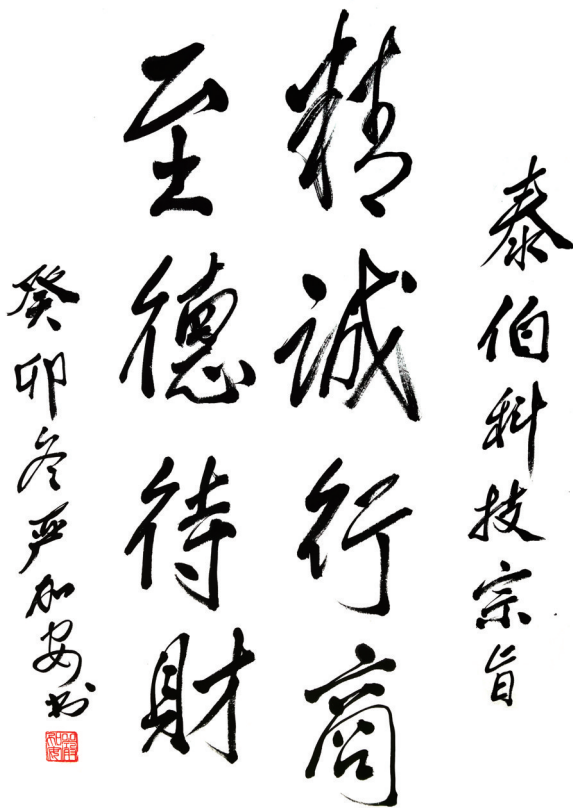 泰伯科技宗旨
精誠行商
至德待財
癸卯冬严加安书